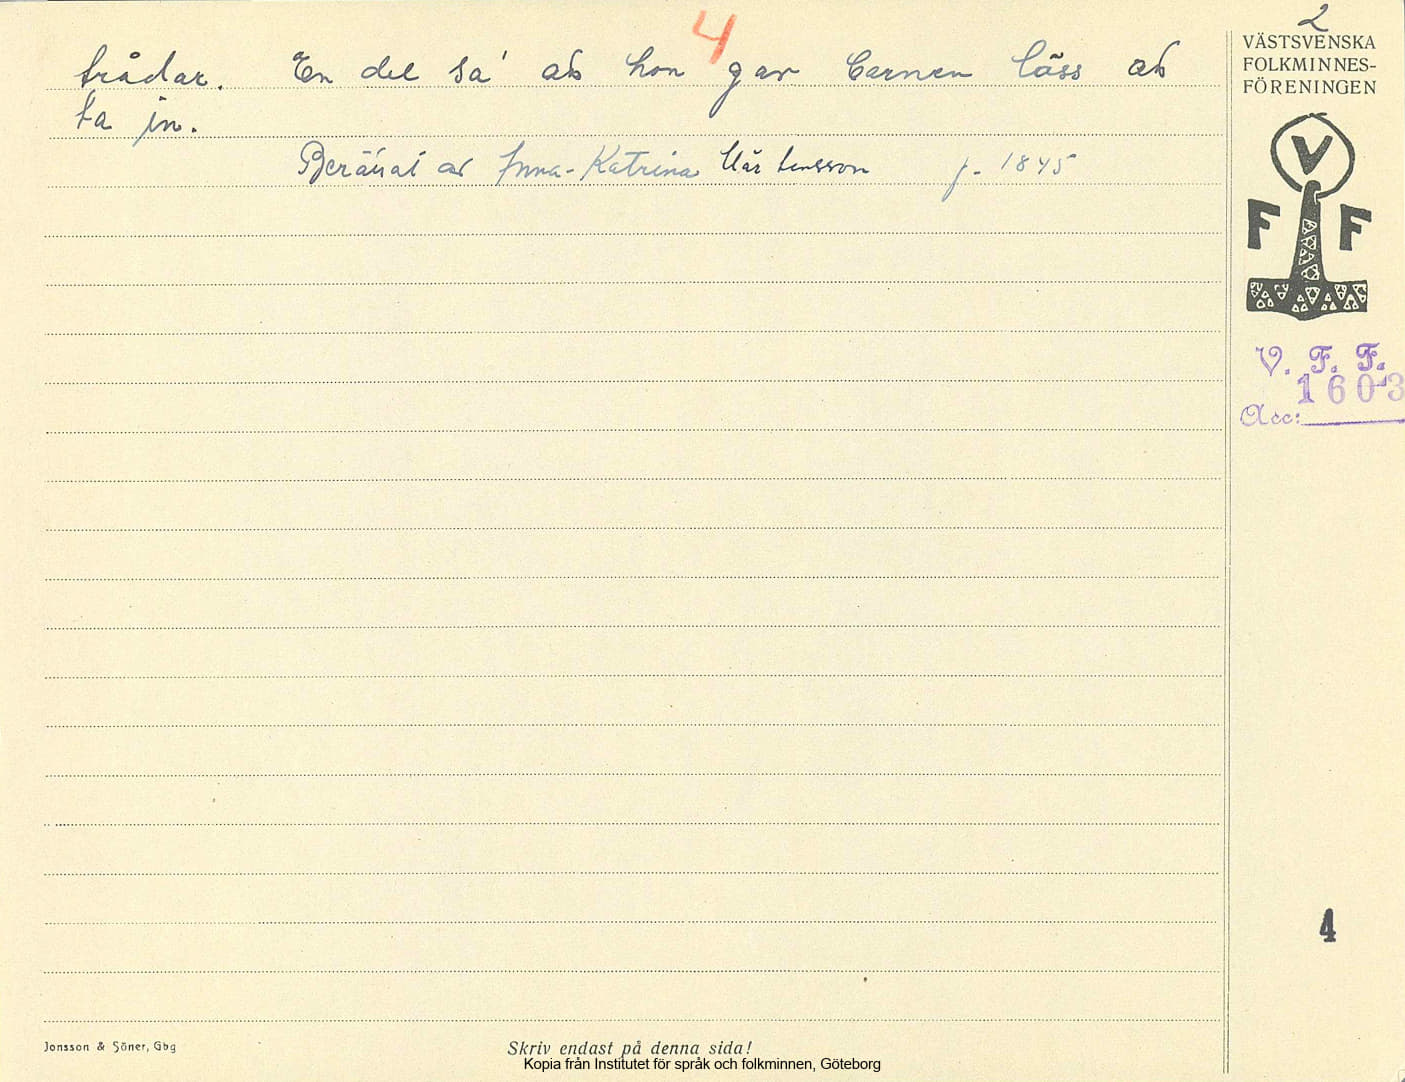 4
2
trådar. En del sa' att hon gav barnen löss att
ta in.
Berättat av Anna-Katrina Mårtensson f. 1845
VÄSTSVENSKA
FOLKMINNES-
FÖRENINGEN
V
F F
V. F. F.
1603
Acc:
4
Jonsson & Söner, Gbg
Skriv endast på denna sida!
Kopia från Institutet för språk och folkminnen, Göteborg